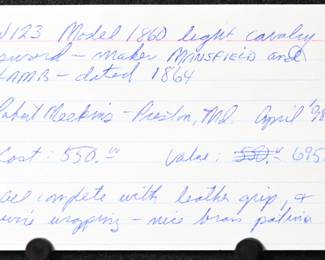 #123 Model 1860 light cavalry
sword - maker MANSFIELD and
LAMB - dated 1864
Robert Meekins - Preston, Md. April '98
Cost: 550.00 Value: 550.00 695.
all complete with leather grip, &
wire wrapping - nice brass patina